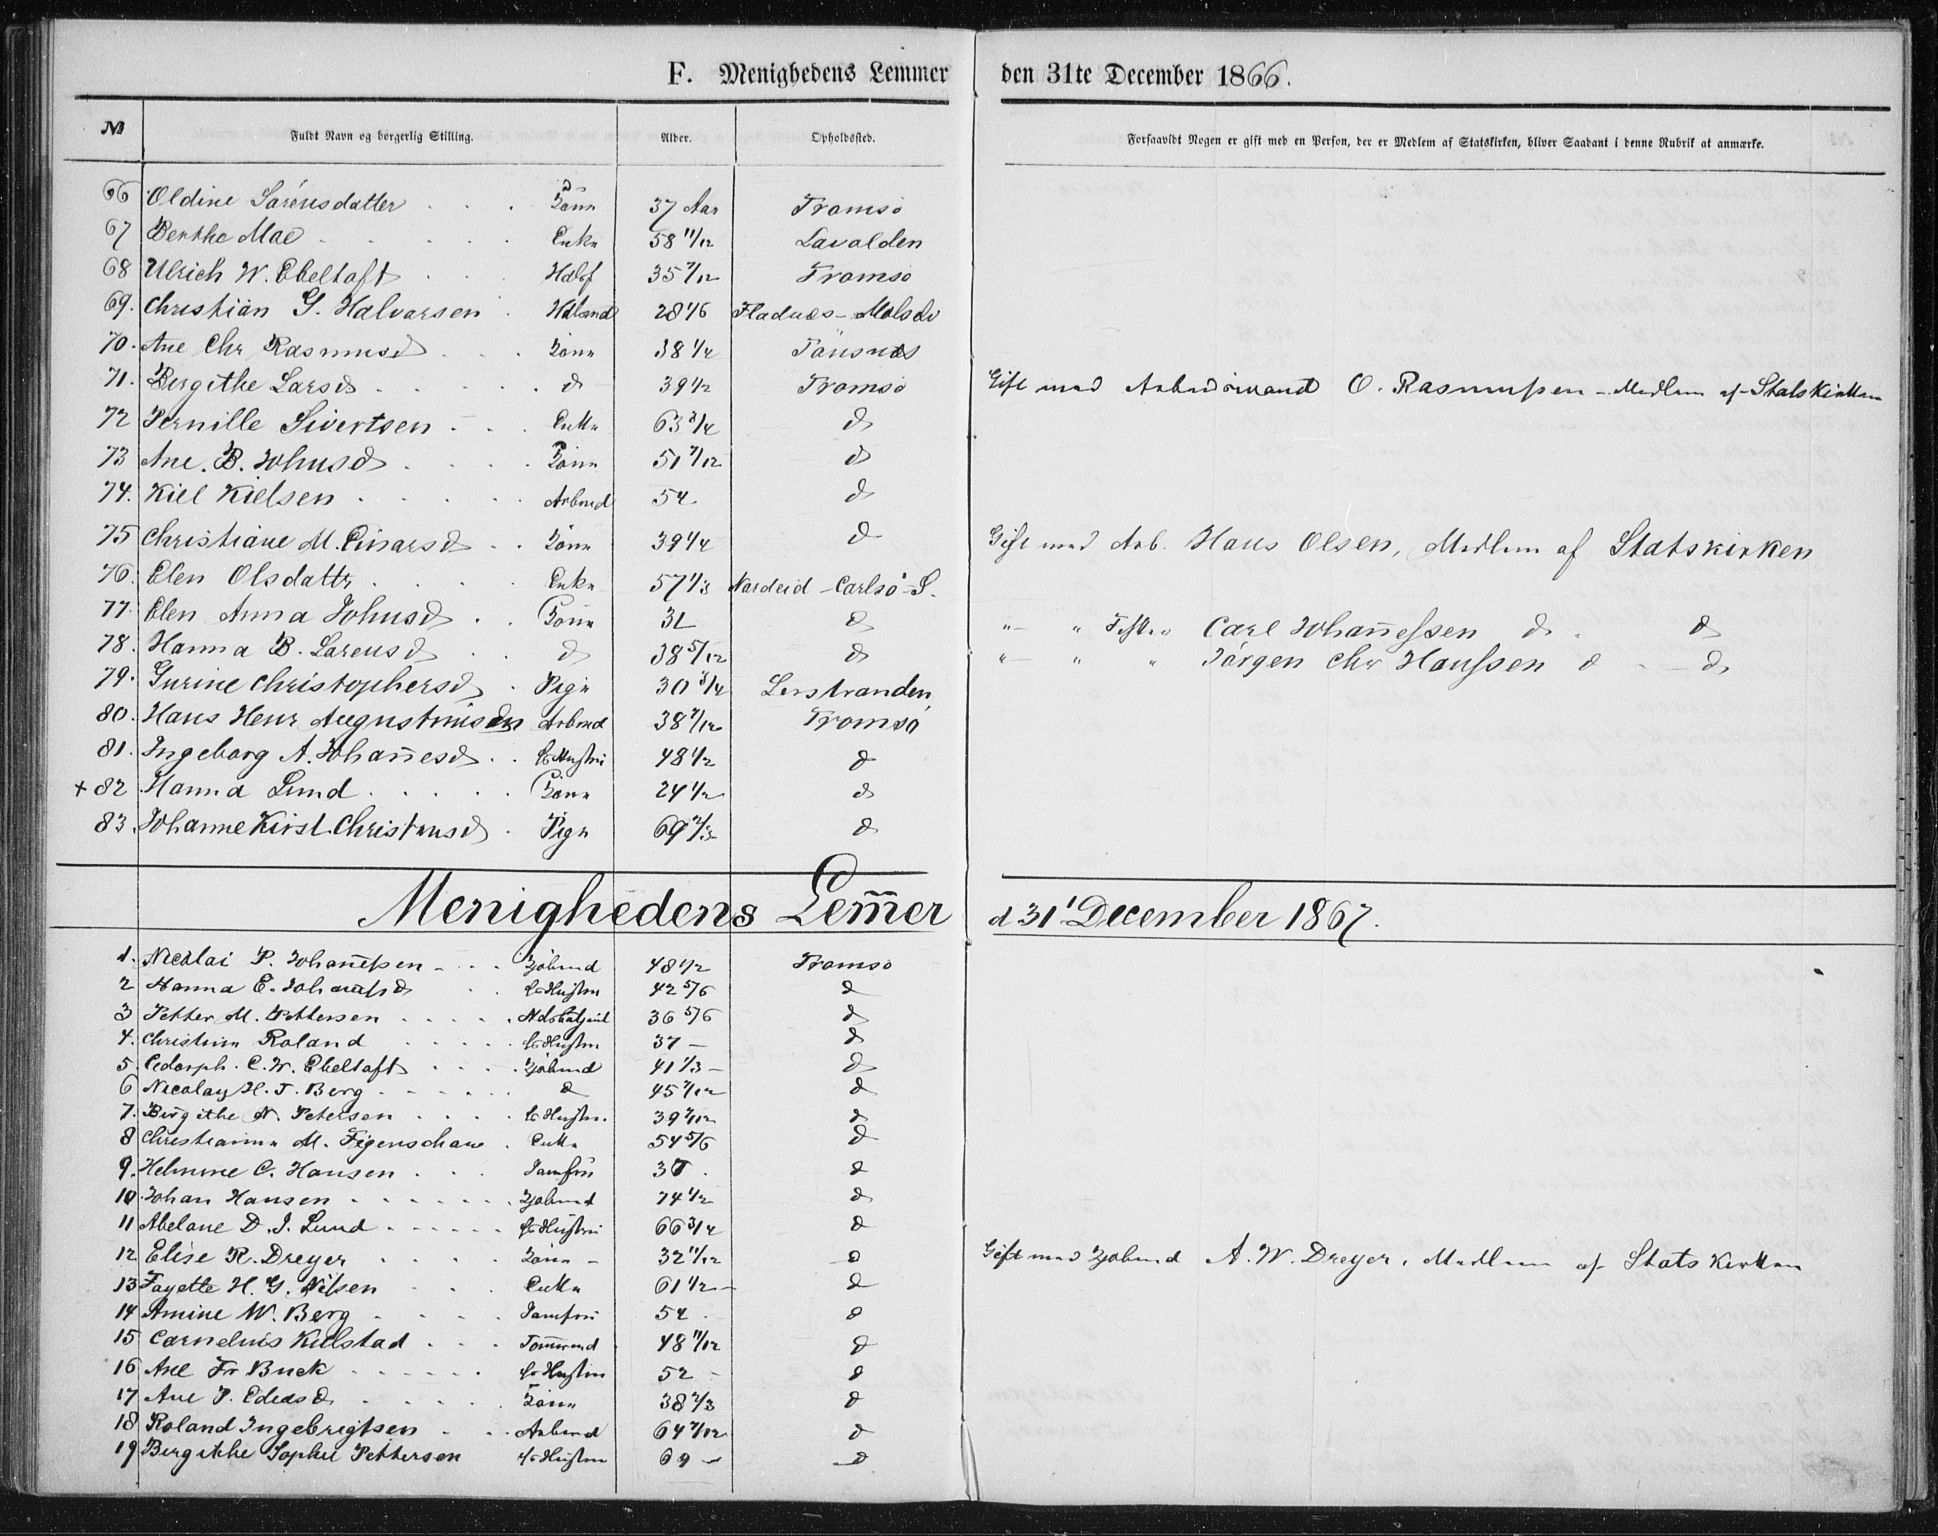 F. Menighedens Lemmer den 31te December 1866.
№ Fuldt Navn og borgerlig Stilling. Alder. Opholdssted. Forsaavidt Nogen er gift med en Person, der er Medlem af Statskirken, bliver Saadant i denne Rubrik at anmærke.
66 Oldine Sørensdatter Kone 37 Aar Tromsø
67 Berthe Moe Enke 58 11/12
68 Ulrich W. Ebeltoft 35 7/12 Tromsø
69. Christian G. Halvorsen 28 1/6
70. Ane Chr Rasmusd Kone 38 1/2 Tønsnes
71. Bergithe Larsd d 39 1/2 Tromsø Gift med Arbeidsmand O. Rasmussen - Medlem af Statskirken
72 Pernille Sivertsen Enke 63 3/4 d
73 Ane. B. Johnsd Kone 51 7/12 d
74. Kiel Kielsen Arbmd 54 d
75 Christiane M. Einarsd Kone 39 1/4 d Gift med Arb. Hans Olsen, Medlem af Statskirken
76. Elen Olsdattr Enke 57 1/3 Nordeid - Carlsø S.
77. Elen Anna Johnsd Kone 31 d " " Carl Johannessen d d
78. Hanna B. Larensd d 38 5/12 d " " " Jørgen Chr Hanssen d d
79. Gurine Christophersd Pige 30 3/4 Lerstranden
80. Hans Henr Augustinusen Arbmd 38 7/12 Tromsø
81. Ingeborg A. Johannesd Hustru 48 1/2 d
+ 82 Hanna Lund Kone 24 1/2 d
83. Johanne Kirst. Christensd Pige 69 2/3 d
Menighedens Lemmer d 31' December 1867.
1. Nicolai P. Johannessen 48 1/2 Tromsø
2 Hanna E. Johannesd Hustru 42 5/6 d
3 Petter M. Pettersen 36 5/6 d
4. Christine Roland Hustru 37 - d
5. C. W. Ebeltoft 41 1/3 - d
6 Nicolay H. J. Berg d 45 7/12 d
7. Birgithe N. Petersen Hustru 39 7/12 d
8 Christianna M. Figenschau Enke 54 5/6 d
9. Helmine C. Hansen Jomfru d
10 Johan Hansen 74 1/2 d
11 Abelone D. J. Lund Hustru 66 3/4 d
12 Elise R. Dreyer Kone 32 11/12 d Gift med A. W. Dreyer, Medlem af Statskirken
13 Fayette H. G. Nilsen Enke 61 1/2 - d
14 Amine W. Berg Jomfru 54 d
15 Cornelius Kielstad Tømmermd 48 11/12 d
16 Ane Fr Buck Hustru 52 - d
17 Ane P. Edeasd Kone 38 2/3 d
18 Roland Ingebrigtsen Arbmd 64 7/12 d
19 Birgithe Sophie Pettersen Hustru 69 - d